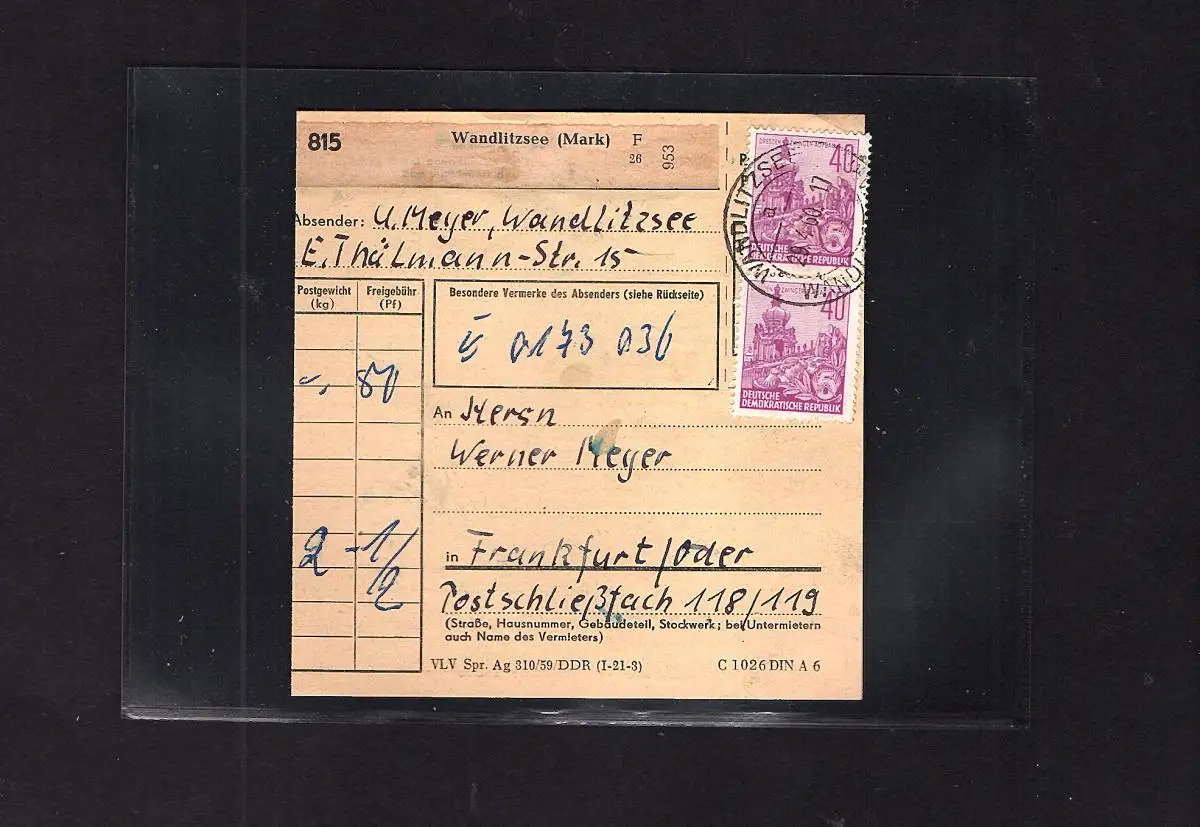 815
Wandlitzsee (Mark)
F
26
953
Absender: U. Meyer, Wandlitzsee
E. Thälmann-Str. 15
Postgewicht
(kg)
Freigebühr
(Pf)
80
2 -1/
2
Besondere Vermerke des Absenders (siehe Rückseite)
0173 036
An Herrn
Werner Meyer
in Frankfurt/Oder
Postschließfach 118/119
(Straße, Hausnummer, Gebäudeteil, Stockwerk; bei Untermietern
auch Name des Vermieters)
VLV Spr. Ag 310/59/DDR (I-21-3)
C 1026 DIN A 6
P
40
WANDLITZSEE
60.-17
5
DEUTSCHE
DEMOKRATISCHE REPUBLIK
WANDL
40
5
DEUTSCHE
DEMOKRATISCHE REPUBLIK